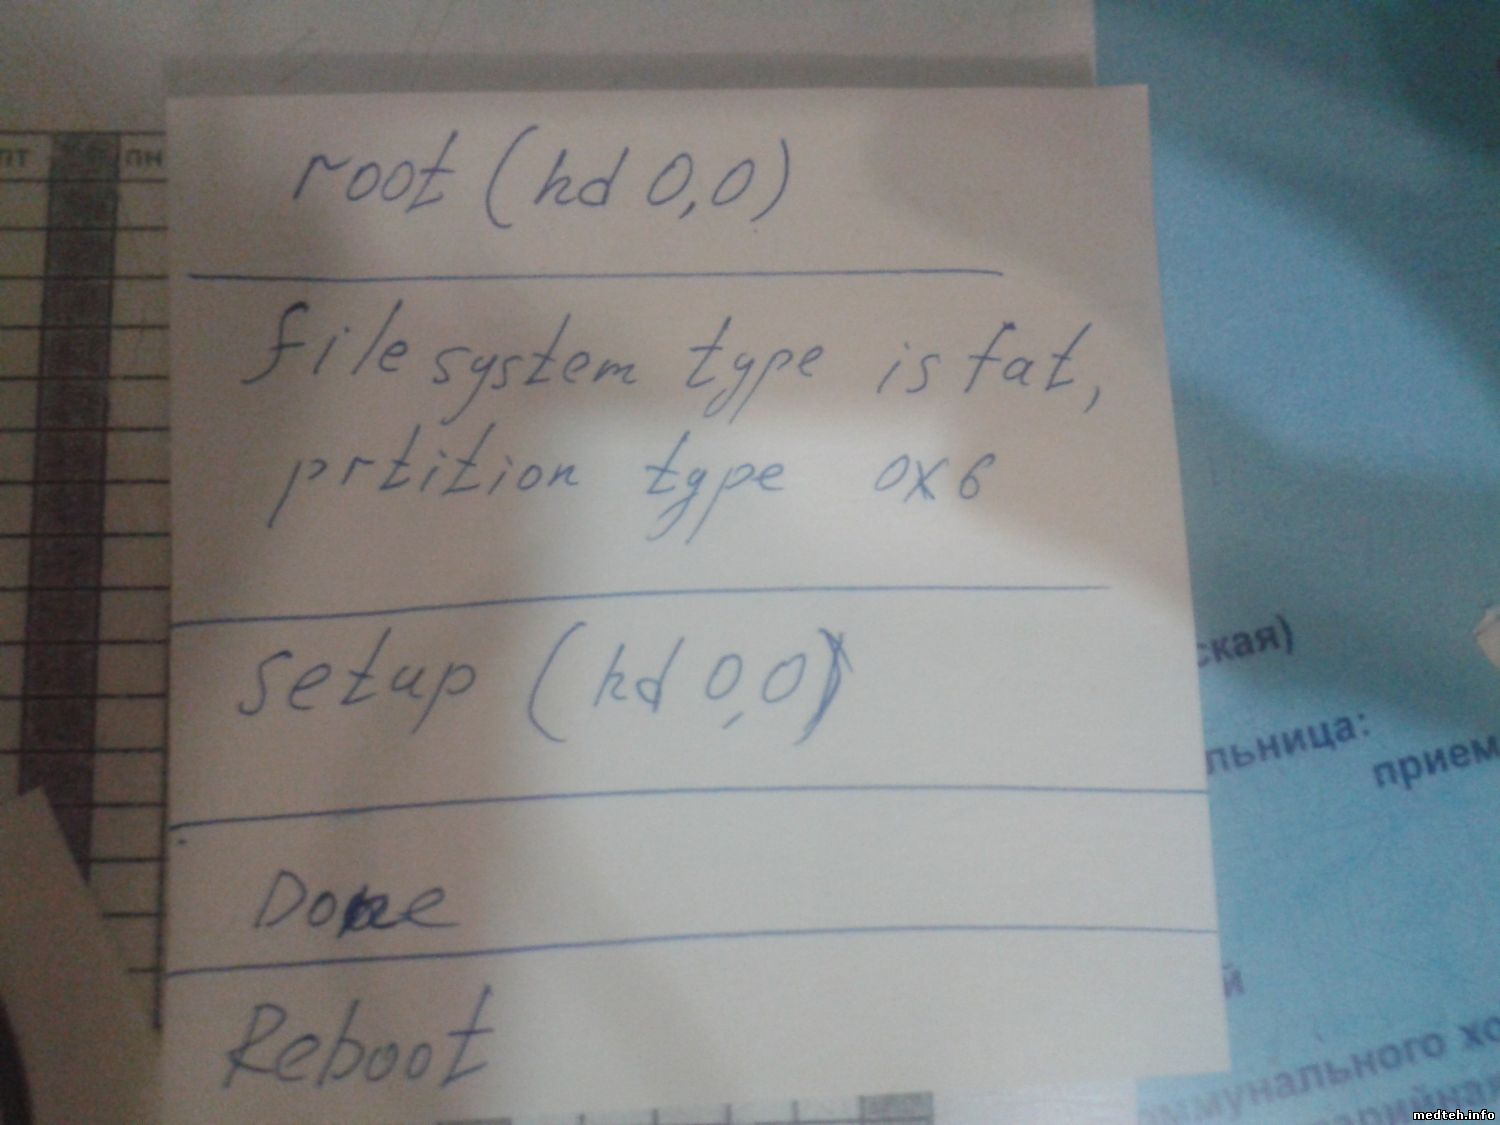 пт
пн
root (hd 0,0)
file system type is fat,
prtition type 0x6
setup (hd 0,0)
Done
Reboot
ская)
льница:
прием
й
ммунального хо
арийная
medteh.info